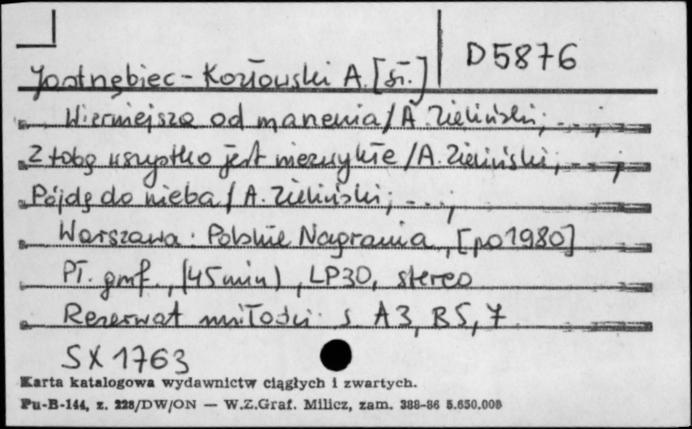 D5876
Jastrzębiec-Kozłowski A. [sł.]
Wierniejsza od marzenia / A. Zieliński; ...;
Z tobą wszystko jest niezwykłe / A. Zieliński; ...;
Pójdę do nieba / A. Zieliński; ...;
Warszawa: Polskie Nagrania, [po 1980]
Pł. gmf., (45 min), LP30, stereo
Rezerwat miłości s. A3, B5, 7
SX 1763
Karta katalogowa wydawnictw ciągłych i zwartych.
Pu-B-144, z. 228/DW/ON — W.Z.Graf. Milicz, zam. 388-86 5.650.000